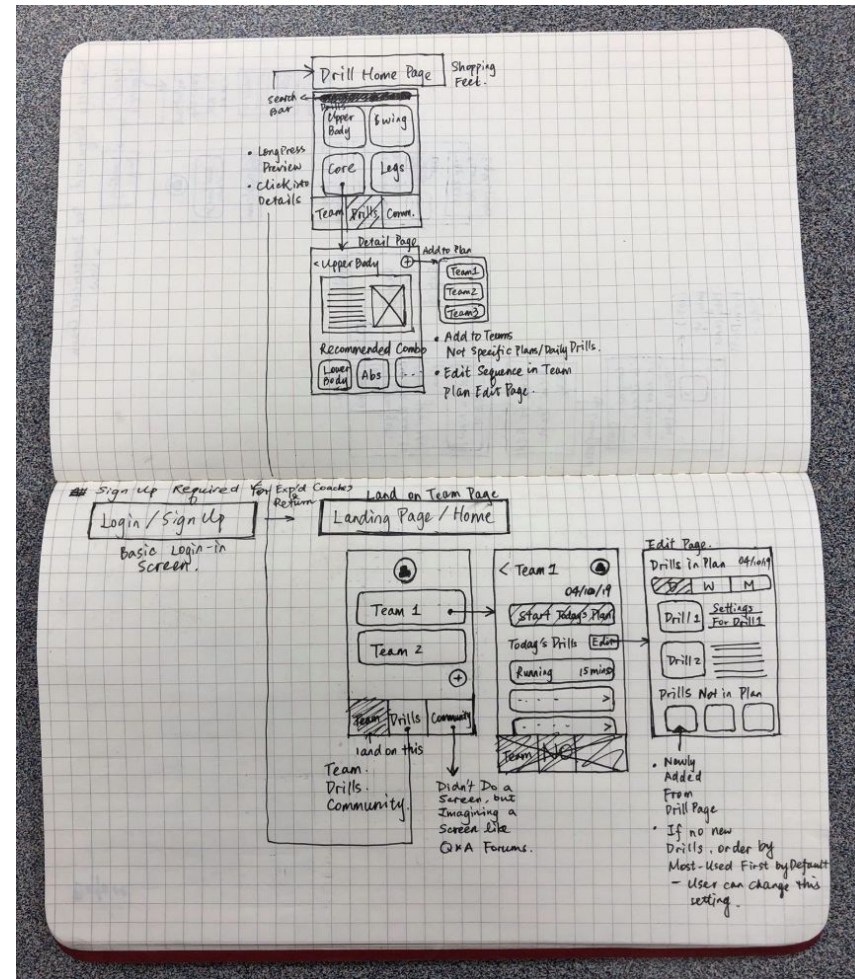 Drill Home Page
Shopping
Feel.
Search
Bar
Drills
Upper
Body
Swing
Core
Legs
Team Drills Comm.
• Long Press
Preview
• Click into
Details
Detail Page
< Upper Body +
Add to Plan
Team 1
Team 2
Team 3
Recommended Combo
Lower
Body
Abs
...
• Add to Teams
Not Specific Plans/Daily Drills.
• Edit Sequence in Team
Plan Edit Page.
Sign Up Required for Exp'd Coaches
Return
Login / Sign Up
Basic Login-in
Screen.
Land on Team Page
Landing Page / Home
Team 1
Team 2
+
Team Drills Community
land on this
Team.
Drills.
Community.
Didn't Do a
Screen, but
Imagining a
Screen like
Q&A Forums.
< Team 1
04/10/19
Start Today's Plan
Today's Drills Edit
Running 15 mins
- - - >
- - - >
Team NO
Edit Page.
Drills in Plan 04/10/19
D W M
Drill 1
Settings
For Drill 1
Drill 2
Drills Not in Plan
• Newly
Added
From
Drill Page
• If no new
Drills, order by
Most-Used First by Default
- User can change this
setting.